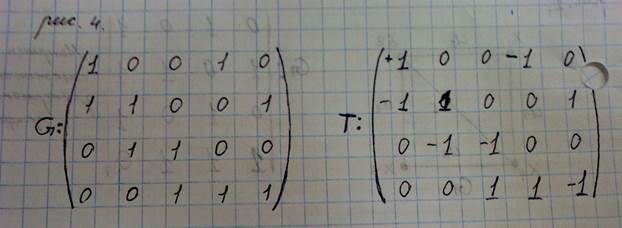 рис. 4.
G: 1 0 0 1 0 T: +1 0 0 -1 0
1 1 0 0 1 -1 1 0 0 1
0 1 1 0 0 0 -1 -1 0 0
0 0 1 1 1 0 0 1 1 -1